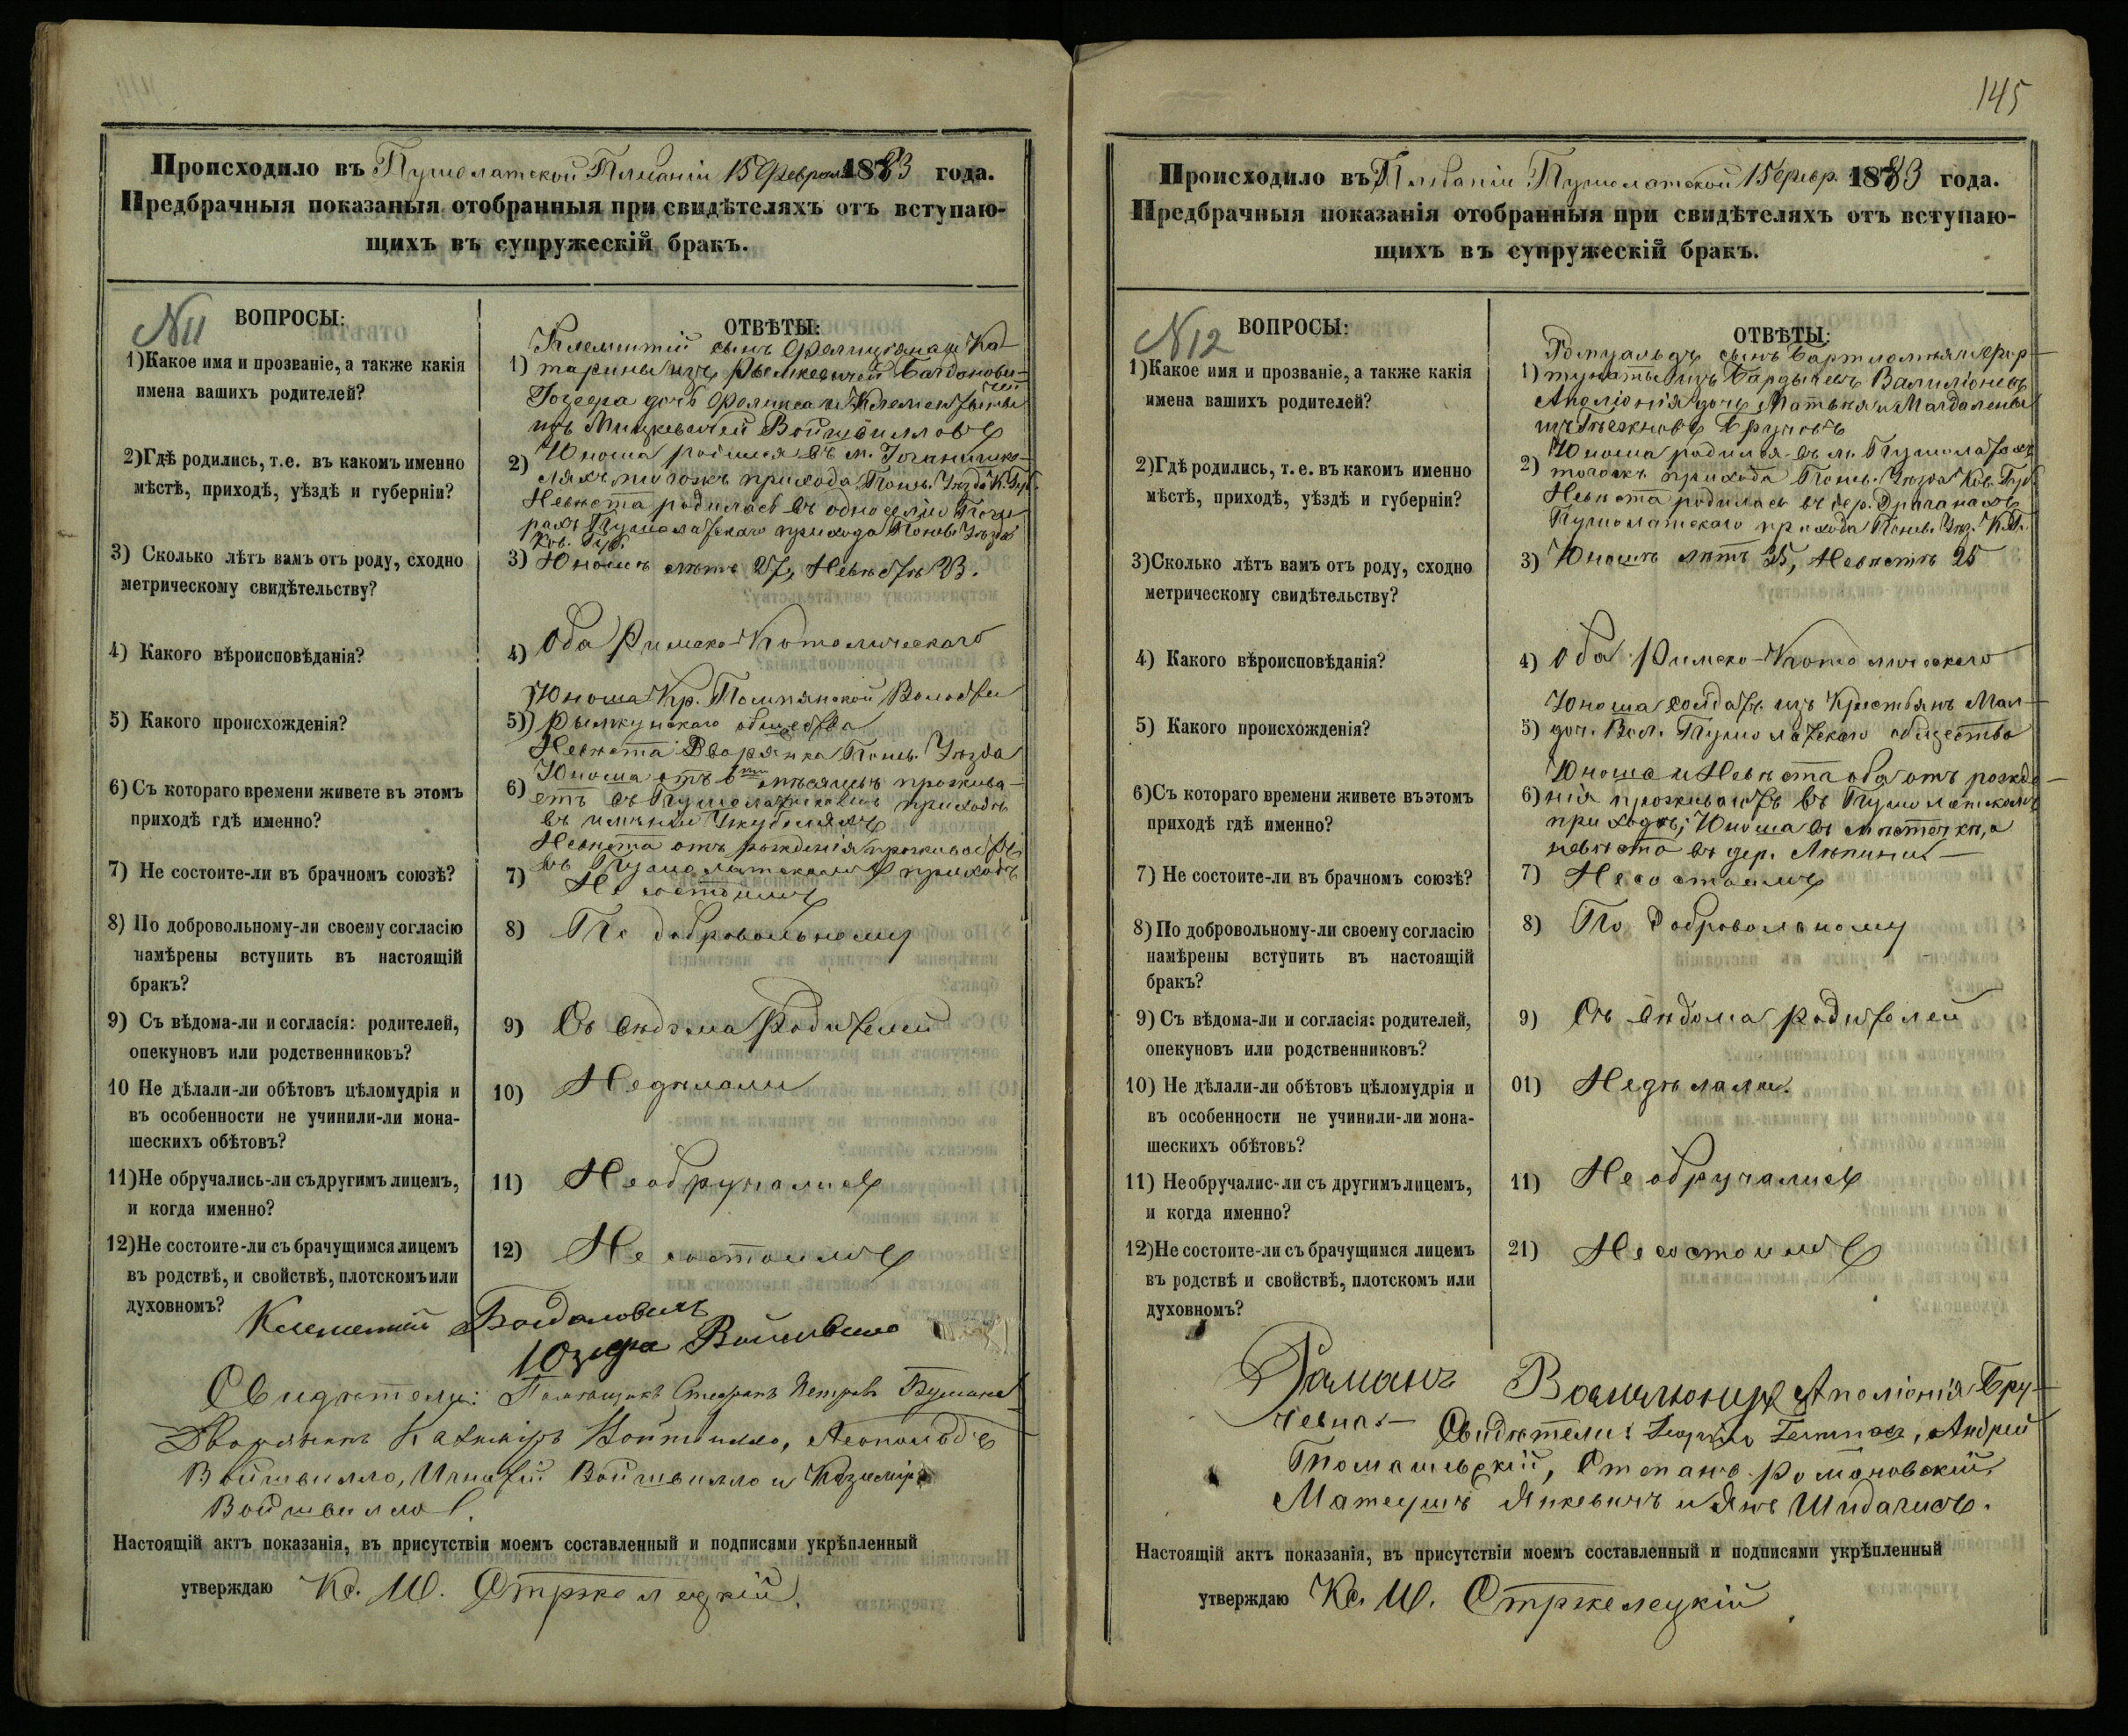 Происходило въ Пушолатской Плебаніи 15 Февраля 1883 года.
Предбрачныя показаныя отобранныя при свидѣтеляхъ отъ вступаю-
щихъ въ супружескій бракъ.
N11
ВОПРОСЫ:
1)Какое имя и прозваніе, а также какія
имена вашихъ родителей?
2)Гдѣ родились, т.е. въ какомъ именно
мѣстѣ, приходѣ, уѣздѣ и губерніи?
3) Сколько лѣтъ вамъ отъ роду, сходно
метрическому свидѣтельству?
4) Какого вѣроисповѣданія?
5) Какого происхожденія?
6) Съ котораго времени живете въ этомъ
приходѣ гдѣ именно?
7) Не состоите-ли въ брачномъ союзѣ?
8) По добровольному-ли своему согласію
намѣрены вступить въ настоящій
бракъ?
9) Съ вѣдома-ли и согласія: родителей,
опекуновъ или родственниковъ?
10 Не дѣлали-ли обѣтовъ цѣломудрія и
въ особенности не учинили-ли мона-
шескихъ обѣтовъ?
11)Не обручались-ли съ другимъ лицемъ,
и когда именно?
12)Не состоите-ли съ брачущимся лицемъ
въ родствѣ, и свойствѣ, плотскомъ или
духовномъ?
ОТВѢТЫ:
Клементій сынъ Фелиціана и Ка-
1) тарины изъ Рымкевичей Багданови-
чей
Юзефа дочь Феликса и Клементыны
изъ Мицкевичей Войшвилловъ
2) Юноша родился въ м.
прихода Понев. Уѣзда К. Губ.
Невѣста родилась въ
Пушолатскаго прихода Понев. Уѣзда
Ков. Губ.
3) Юношѣ лѣтъ 27, Невѣстѣ 23.
4) Оба Римско-Католическаго
Юноша Кр. Помпянской Волости
5) Рымкунскаго общества
Невѣста Дворянка Понев. Уѣзда
Юноша отъ 6 мѣсяцевъ прожива-
6) етъ въ Пушолатскомъ приходѣ
въ имѣніи
Невѣста отъ рожденія проживаетъ
въ Пушолатскомъ приходѣ
7) Не состоимъ
8) По добровольному
9) Съ вѣдома Родителей
10) Не дѣлали
11) Не обручались
12) Не состоимъ
Клементій Богдановичъ
Юзефа Войшвилло
Свидѣтели: Помѣщикъ Стефанъ Петровъ
Дворянинъ Казимиръ Войшвилло, Леопольдъ
Войшвилло, Игнатій Войшвилло и Казиміръ
Войшвилло.
Настоящій актъ показанія, въ присутствіи моемъ составленный и подписями укрѣпленный
утверждаю Кс. Ш. Стржелецкій.
145
Происходило въ Плебаніи Пушолатской 15 февр. 1883 года.
Предбрачныя показанія отобранныя при свидѣтеляхъ отъ вступаю-
щихъ въ супружескій бракъ.
N12
ВОПРОСЫ:
1)Какое имя и прозваніе, а также какія
имена вашихъ родителей?
2)Гдѣ родились, т. е. въ какомъ именно
мѣстѣ, приходѣ, уѣздѣ и губерніи?
3)Сколько лѣтъ вамъ отъ роду, сходно
метрическому свидѣтельству?
4) Какого вѣроисповѣданія?
5) Какого происхожденія?
6)Съ котораго времени живете въ этомъ
приходѣ гдѣ именно?
7) Не состоите-ли въ брачномъ союзѣ?
8) По добровольному-ли своему согласію
намѣрены вступить въ настоящій
бракъ?
9) Съ вѣдома-ли и согласія: родителей,
опекуновъ или родственниковъ?
10) Не дѣлали-ли обѣтовъ цѣломудрія и
въ особенности не учинили-ли мона-
шескихъ обѣтовъ?
11) Необручалис-ли съ другимъ лицемъ,
и когда именно?
12)Не состоите-ли съ брачущимся лицемъ
въ родствѣ и свойствѣ, плотскомъ или
духовномъ?
ОТВѢТЫ:
Ромуальдъ сынъ Бартломѣя и Фор-
1) тунаты изъ Валиліоневъ
Аполіонія дочь Матвѣя и Магдалены
изъ
Юноша родился въ м. Пушолатахъ
2) тогожъ прихода Понев. Уѣзда Ков. Губ.
Невѣста родилась въ дер.
Пушолатскаго прихода Понев. Уѣз. К. Г.
3) Юношѣ лѣтъ 35, Невѣстѣ 25
4) Оба Римско-Католическаго
Юноша солдатъ изъ Крестьянъ
5) Вол. Пушолатскаго общества
Юноша и Невѣста оба отъ рожде-
6) нія проживаютъ въ Пушолатскомъ
приходѣ; Юноша въ мѣстечкѣ, а
невѣста въ дер.
7) Не состоимъ
8) По добровольному
9) Съ вѣдома родителей
01) Не дѣлали.
11) Не обручались
21) Не состоимъ
Раманъ Аполіонія Бру-
Свидѣтели: Андрей
Томашевскій, Степанъ Романовскій,
Матеушъ Янкевичъ и Янъ
Настоящій актъ показанія, въ присутствіи моемъ составленный и подписями укрѣпленный
утверждаю Кс. Ш. Стржелецкій.